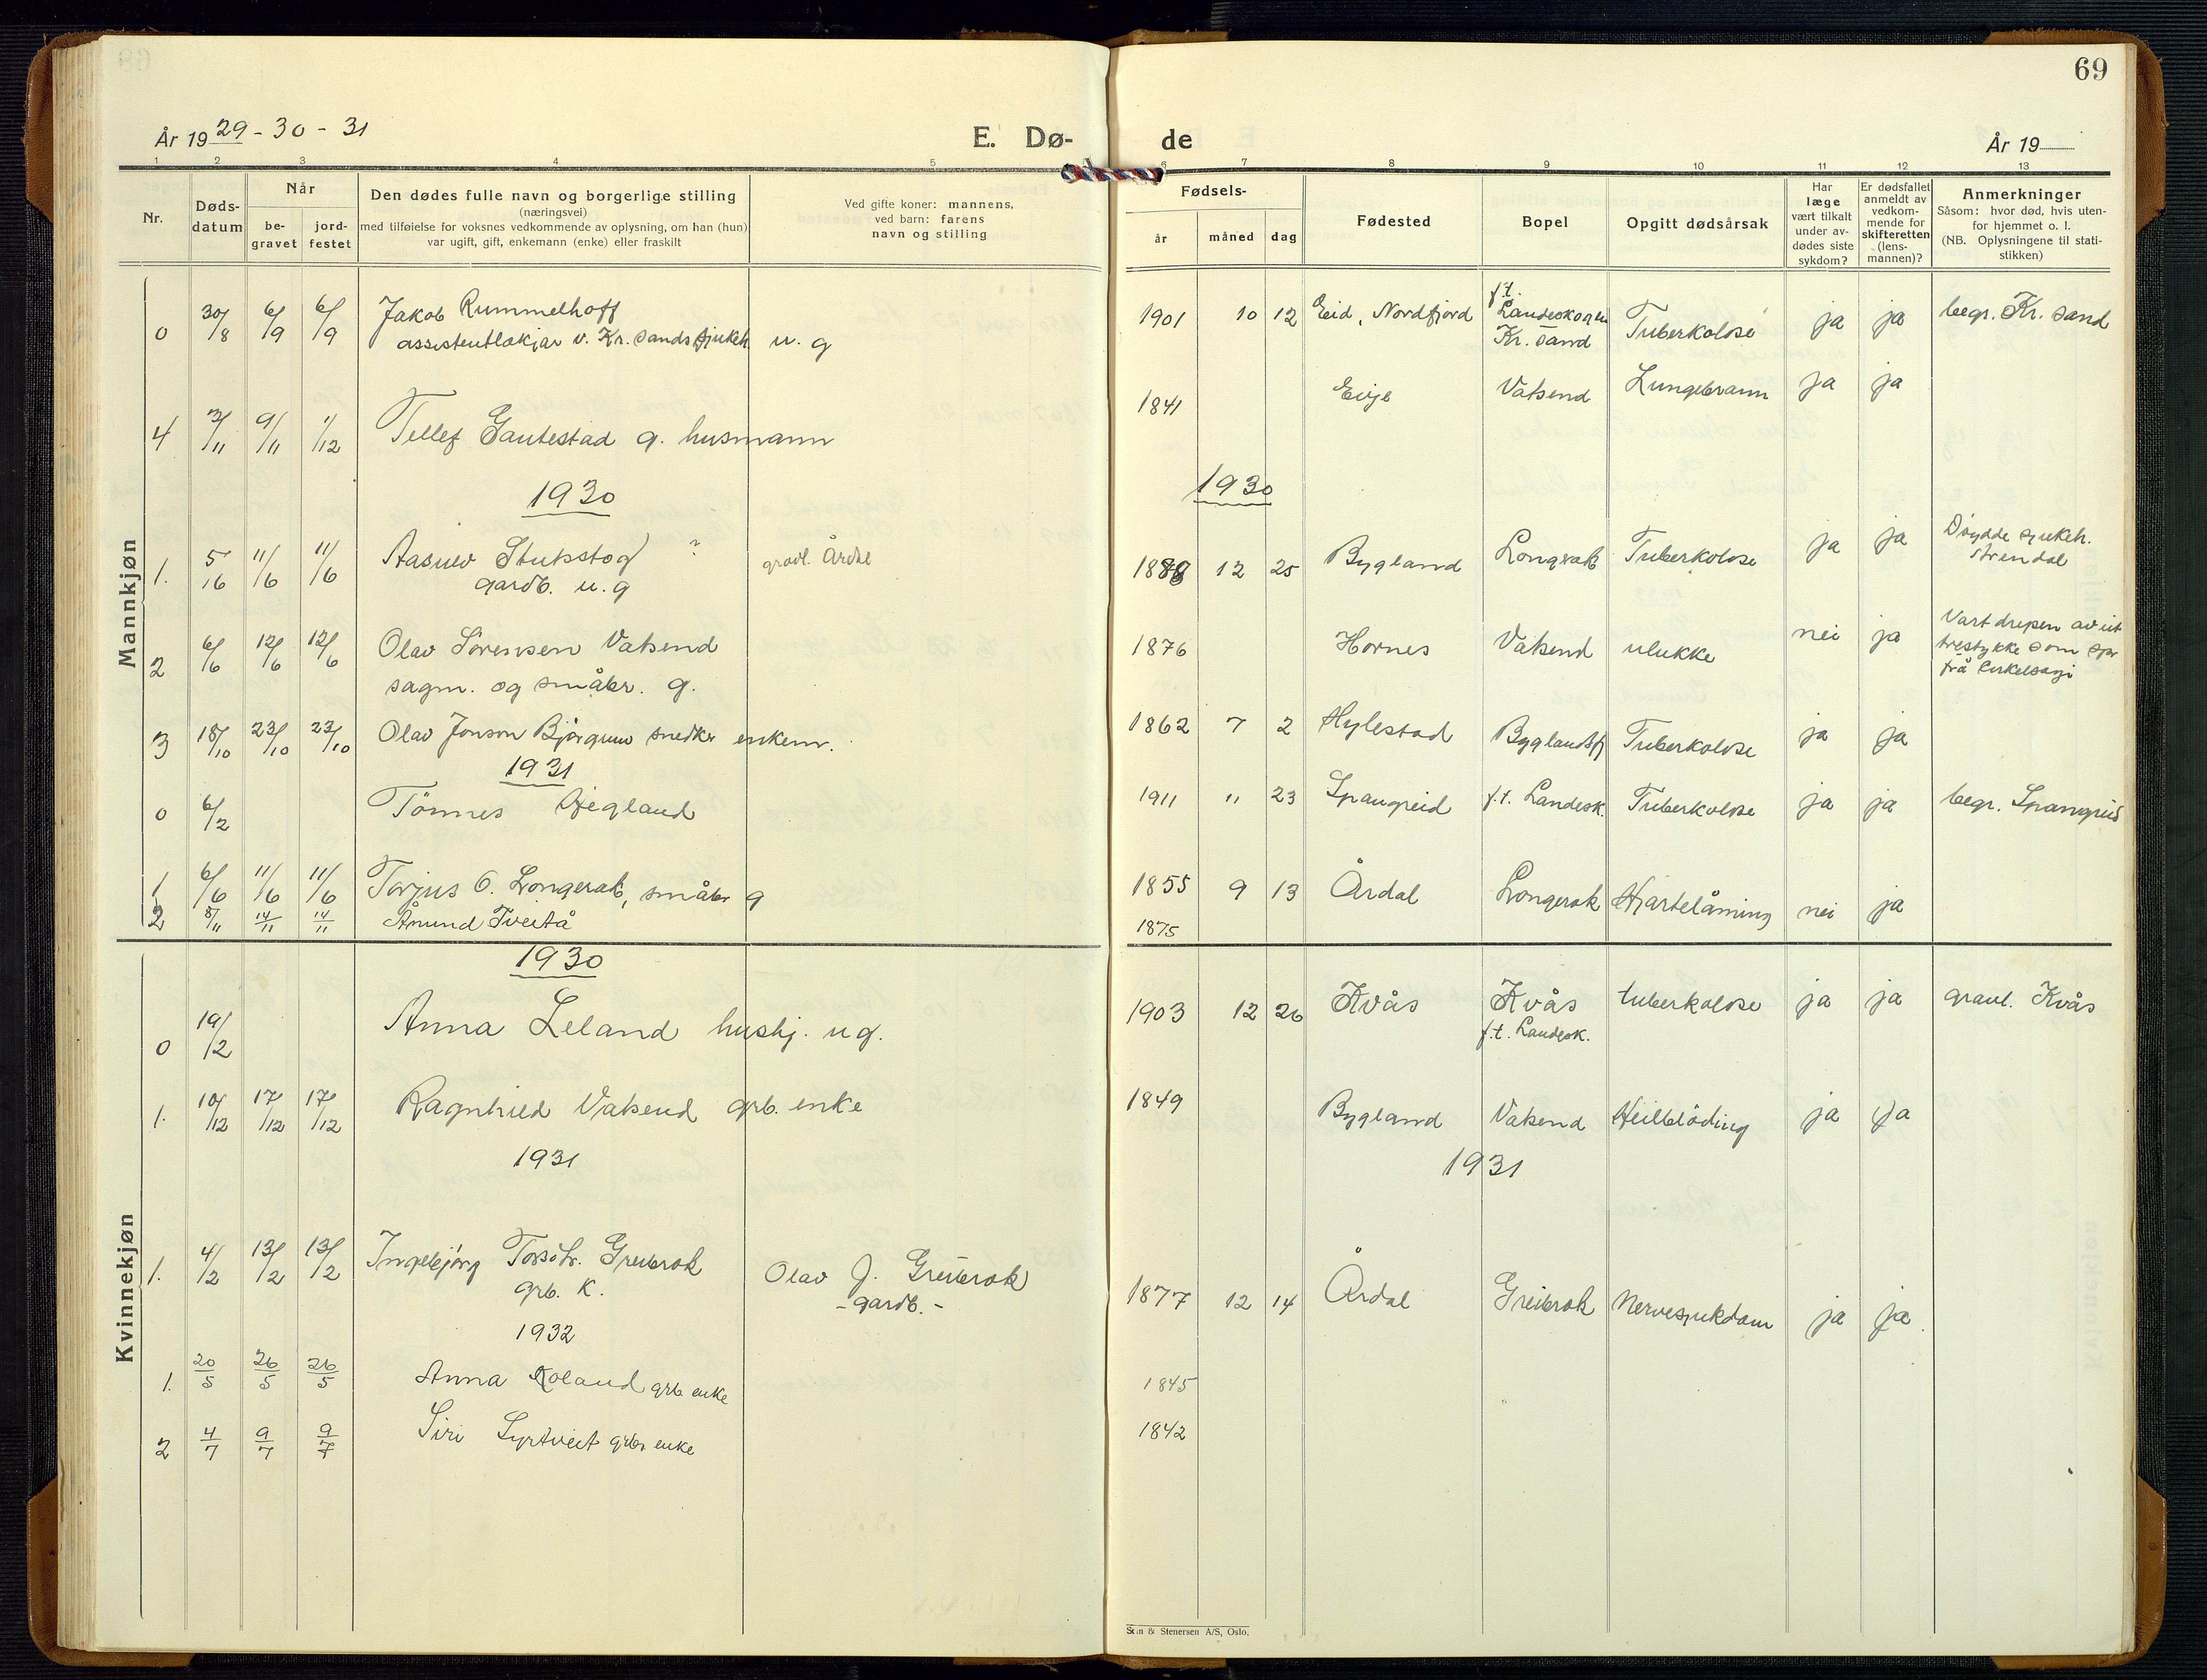 69
År 1929 - 30 - 31
E. Dø-
de
År 19
1 2 3 4 5 6 7 8 9 10 11 12 13
Nr.
Døds-
datum
Når
be-
gravet
jord-
festet
Den dødes fulle navn og borgerlige stilling
(næringsvei)
med tilføielse for voksnes vedkommende av oplysning, om han (hun)
var ugift, gift, enkemann (enke) eller fraskilt
Ved gifte koner: mannens,
ved barn: farens
navn og stilling
Fødsels-
år måned dag
Fødested
Bopel
Opgitt dødsårsak
Har
læge
vært tilkalt
under av-
dødes siste
sykdom?
Er dødsfallet
anmeldt av
vedkom-
mende for
skifteretten
(lens-
mannen)?
Anmerkninger
Såsom: hvor død, hvis uten-
for hjemmet o. l.
(NB. Oplysningene til stati-
stikken)
Mannkjøn
0 30/8 6/9 6/9 Jakob Rummelhoff
assistentlækjar v. Kr. sands sjukeh. u. g
1901 10 12 Eid, Nordfjord f.t. Landeskogen Kr. sand Tuberkolose ja ja begr. Kr. sand
4 3/11 9/11 1/12 Tellef Gautestad g. husmann
1841 Evje Vatsend Lungebrann ja ja
1930
1930
1. 5/16 11/6 11/6 Aasuv Stupstog ? gravl. Årdal
gardb. u. g
1888 12 25 Bygland Longerak Tuberkolose ja ja Döydde sjukeh.
Strendal
2 6/6 12/6 12/6 Olav Sörensen Vatsend
sagm. og småbr. g.
1876 Hornes Vatsend ulukke nei ja Vart drepen av eit
trestykke som spr
frå Cirkelsagi
3 18/10 23/10 23/10 Olav Jonson Björgum snedker enkem.
1862 7 2 Hylestad Byglandsfj Tuberkolose ja ja
1931
0 6/2 Tönnes Hegland
1911 11 23 Spangreid f.t. Landesk. Tuberkolose ja ja begr. Spangreid
1 6/6 11/6 11/6 Torjus O. Longerak, småbr g
1855 9 13 Årdal Longerak Hjartelåming nei ja
2 8/11 14/11 14/11 Ånund Tveitå
1875
Kvinnekjøn
1930
0 19/2 Anna Leland hushj. ug.
1903 12 26 Kvås Kvås tuberkolose ja ja gravl. Kvås
f.t. Landesk.
1. 10/12 17/12 17/12 Ragnhild Vatsend grb. enke
1849 Bygland Vatsend Heilblöding ja ja
1931
1931
1. 4/2 13/2 13/2 Ingebjörg Torsdtr. Greibrok Olav J. Greibrok
grb. K. - gardb. -
1877 12 14 Årdal Greibrok Nervesjukdom ja ja.
1932
1. 20/5 26/5 26/5 Anna Roland grb enke
1845
2 4/7 9/7 9/7 Siri Syrtveit grbr enke
1842
& Stenersen A/S, Oslo.